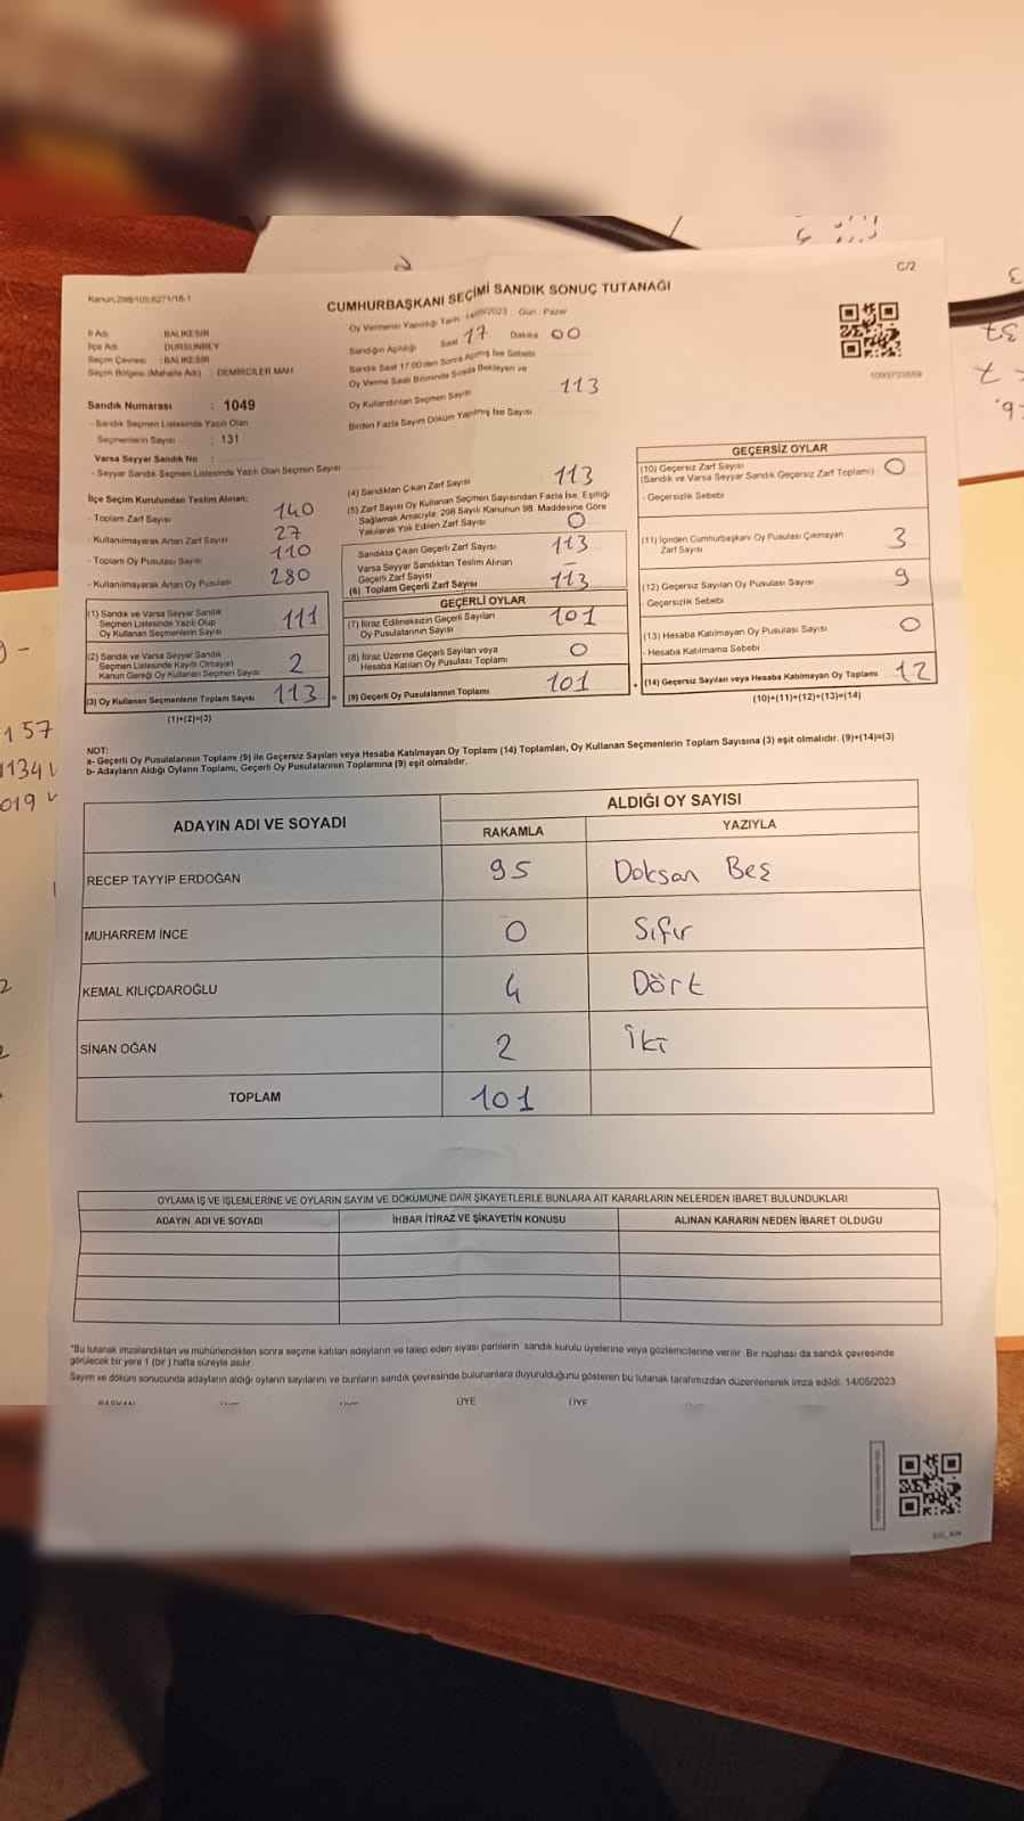 C/2
CUMHURBAŞKANI SEÇİMİ SANDIK SONUÇ TUTANAĞI
Oy Vermenin Yapıldığı Tarih: 14/05/2023 Gün: Pazar
İl Adı : BALIKESİR
İlçe Adı : DURSUNBEY
Seçim Çevresi : BALIKESİR
Seçim Bölgesi (Mahalle Adı) : DEMİRCİLER MAH.
Sandığın Açıldığı Saat 17 Dakika 00
Sandık Saat 17.00'den Sonra Açılmış İse Sebebi
Oy Verme Saati Bitiminde Sırada Bekleyen ve
Oy Kullandırılan Seçmen Sayısı 113
Birden Fazla Sayım Döküm Yapılmış İse Sayısı
Sandık Numarası : 1049
- Sandık Seçmen Listesinde Yazılı Olan
Seçmenlerin Sayısı : 131
Varsa Seyyar Sandık No :
- Seyyar Sandık Seçmen Listesinde Yazılı Olan Seçmen Sayısı
İlçe Seçim Kurulundan Teslim Alınan:
- Toplam Zarf Sayısı 140
- Kullanılmayarak Artan Zarf Sayısı 27
- Toplam Oy Pusulası Sayısı 110
- Kullanılmayarak Artan Oy Pusulası 280
(1) Sandık ve Varsa Seyyar Sandık
Seçmen Listesinde Yazılı Olup
Oy Kullanan Seçmenlerin Sayısı 111
(2) Sandık ve Varsa Seyyar Sandık
Seçmen Listesinde Kayıtlı Olmayan
Kanun Gereği Oy Kullanan Seçmen Sayısı 2
(3) Oy Kullanan Seçmenlerin Toplam Sayısı 113
(1)+(2)=(3)
(4) Sandıktan Çıkan Zarf Sayısı 113
(5) Zarf Sayısı Oy Kullanan Seçmen Sayısından Fazla İse, Eşitliği
Sağlamak Amacıyla, 298 Sayılı Kanunun 98. Maddesine Göre
Yakılarak Yok Edilen Zarf Sayısı 0
Sandıkta Çıkan Geçerli Zarf Sayısı 113
Varsa Seyyar Sandıktan Teslim Alınan
Geçerli Zarf Sayısı -
(6) Toplam Geçerli Zarf Sayısı 113
GEÇERLİ OYLAR
(7) İtiraz Edilmeksizin Geçerli Sayılan
Oy Pusulalarının Sayısı 101
(8) İtiraz Üzerine Geçerli Sayılan veya
Hesaba Katılan Oy Pusulası Toplamı 0
(9) Geçerli Oy Pusulalarının Toplamı 101
GEÇERSİZ OYLAR
(10) Geçersiz Zarf Sayısı
(Sandık ve Varsa Seyyar Sandık Geçersiz Zarf Toplamı) 0
- Geçersizlik Sebebi
(11) İçinden Cumhurbaşkanı Oy Pusulası Çıkmayan
Zarf Sayısı 3
(12) Geçersiz Sayılan Oy Pusulası Sayısı 9
Geçersizlik Sebebi
(13) Hesaba Katılmayan Oy Pusulası Sayısı 0
- Hesaba Katılmama Sebebi
+ (14) Geçersiz Sayılan veya Hesaba Katılmayan Oy Toplamı 12
(10)+(11)+(12)+(13)=(14)
NOT:
a- Geçerli Oy Pusulalarının Toplamı (9) ile Geçersiz Sayılan veya Hesaba Katılmayan Oy Toplamı (14) Toplamları, Oy Kullanan Seçmenlerin Toplam Sayısına (3) eşit olmalıdır. (9)+(14)=(3)
b- Adayların Aldığı Oyların Toplamı, Geçerli Oy Pusulalarının Toplamına (9) eşit olmalıdır.
ADAYIN ADI VE SOYADI
ALDIĞI OY SAYISI
RAKAMLA YAZIYLA
RECEP TAYYİP ERDOĞAN 95 Doksan Beş
MUHARREM İNCE 0 Sıfır
KEMAL KILIÇDAROĞLU 4 Dört
SİNAN OĞAN 2 İki
TOPLAM 101
OYLAMA İŞ VE İŞLEMLERİNE VE OYLARIN SAYIM VE DÖKÜMÜNE DAİR ŞİKAYETLERLE BUNLARA AİT KARARLARIN NELERDEN İBARET BULUNDUKLARI
ADAYIN ADI VE SOYADI İHBAR İTİRAZ VE ŞİKAYETİN KONUSU ALINAN KARARIN NEDEN İBARET OLDUĞU
"Bu tutanak imzalandıktan ve mühürlendikten sonra seçime katılan adayların ve talep eden siyasi partilerin sandık kurulu üyelerine veya gözlemcilerine verilir. Bir nüshası da sandık çevresinde
görülecek bir yere 1 (bir) hafta süreyle asılır.
Sayım ve döküm sonucunda adayların aldığı oyların sayılarını ve bunların sandık çevresinde bulunanlara duyurulduğunu gösteren bu tutanak tarafımızdan düzenlenerek imza edildi. 14/05/2023
BAŞKAN ÜYE ÜYE
157
1134
019